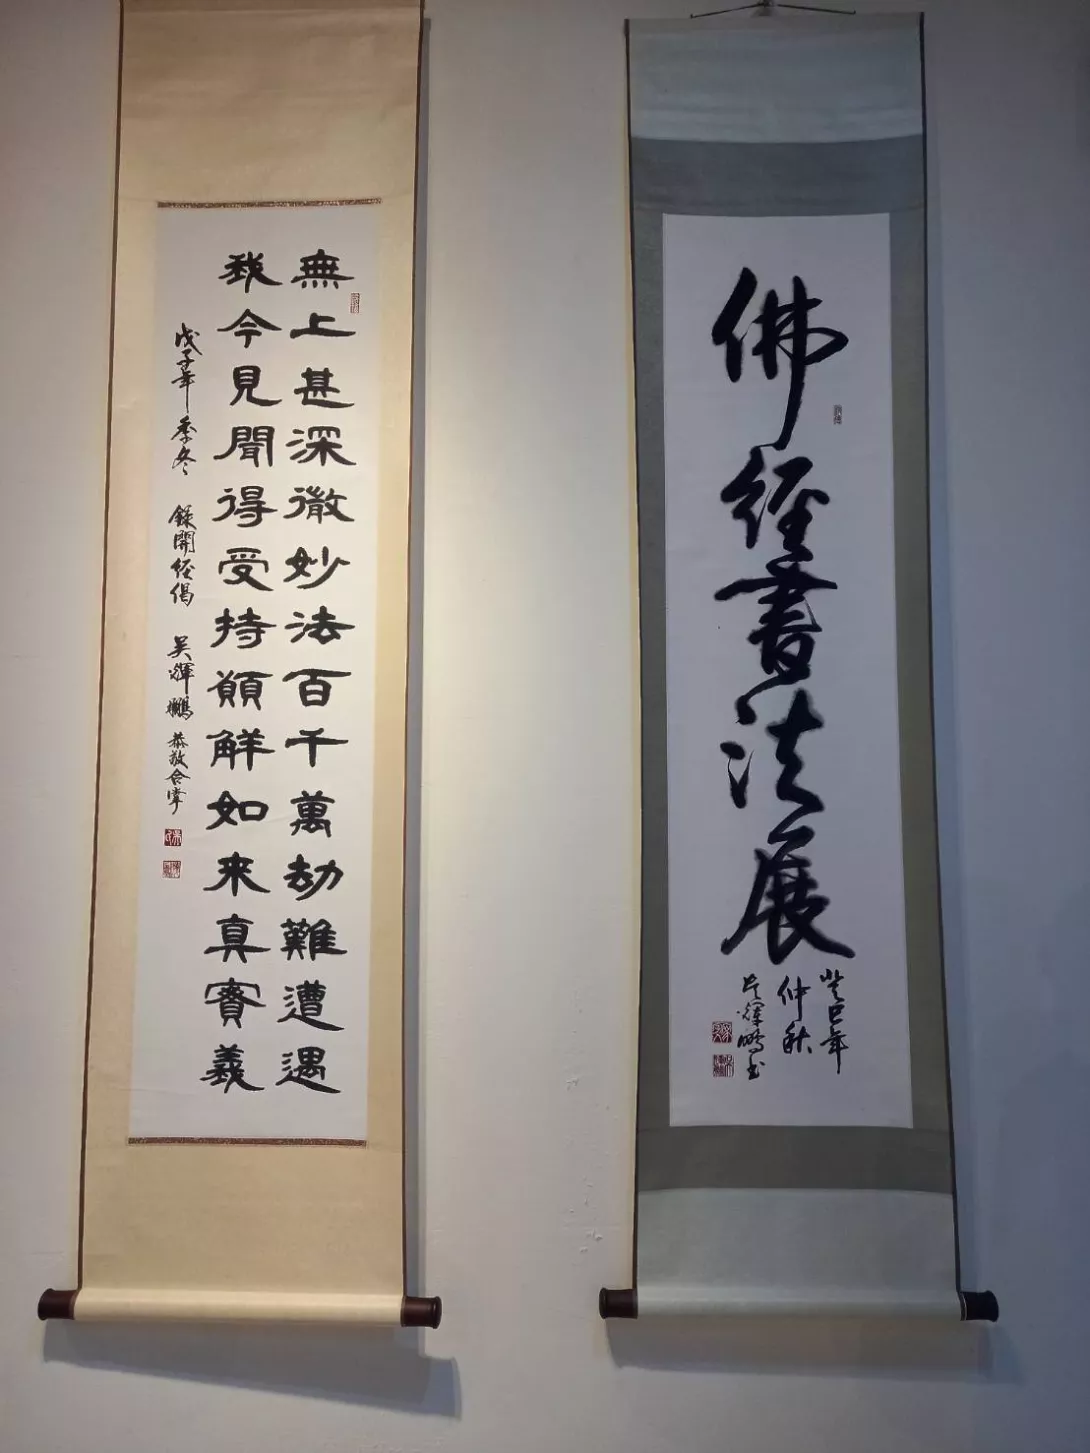 佛經書法展
癸巳年
仲秋
吳輝鵬書
無上甚深微妙法百千萬劫難遭遇
我今見聞得受持願解如来真實義
戊子年季冬 錄開经偈 吴輝鵬恭敬合掌